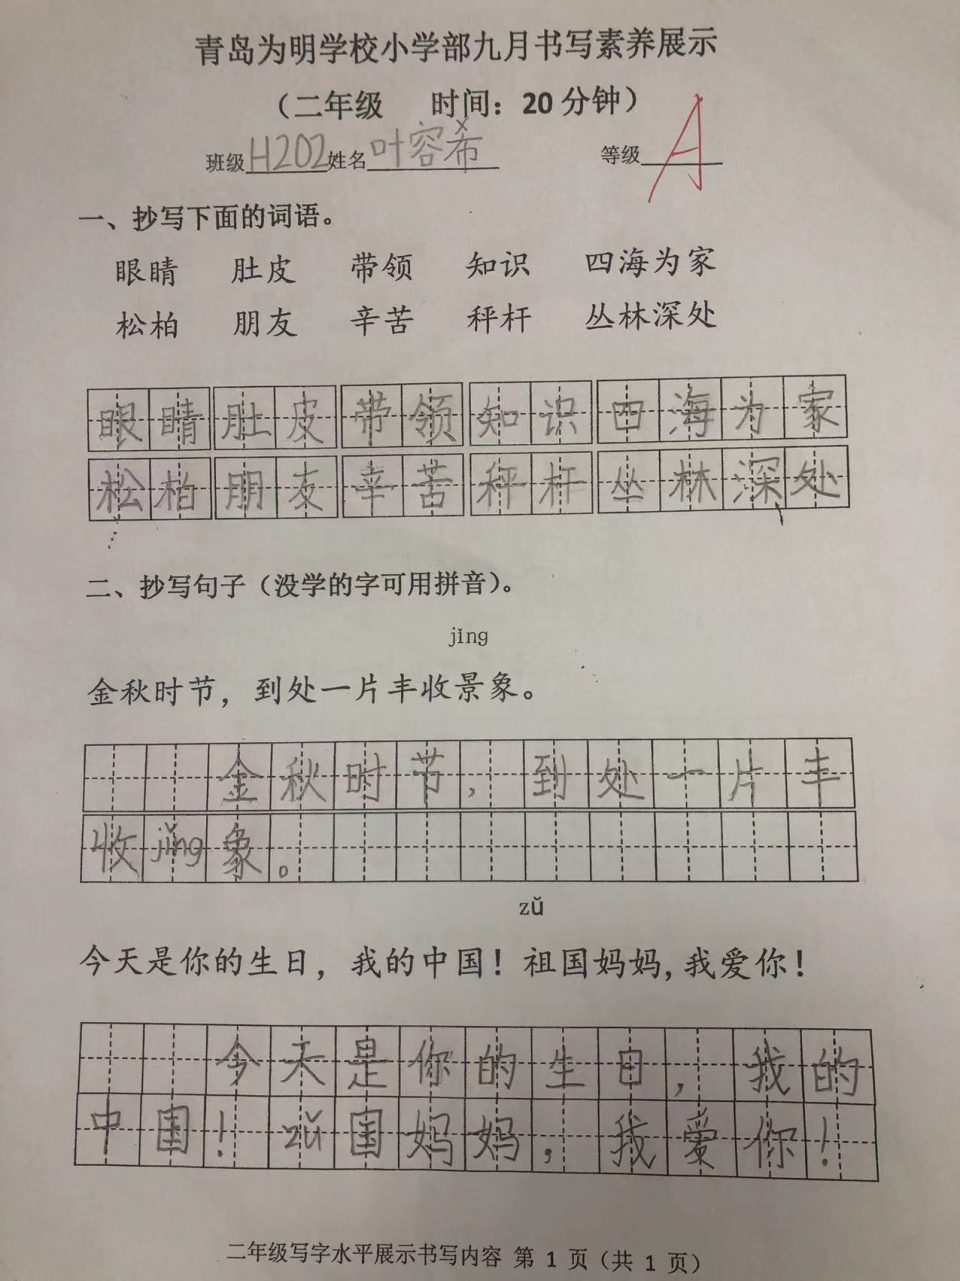 青岛为明学校小学部九月书写素养展示
（二年级 时间：20分钟）
班级H202姓名叶容希 等级A
一、抄写下面的词语。
眼睛 肚皮 带领 知识 四海为家
松柏 朋友 辛苦 秤杆 丛林深处
眼睛 肚皮 带领 知识 四海为家
松柏 朋友 辛苦 秤杆 丛林深处
二、抄写句子（没学的字可用拼音）。
jǐng
金秋时节，到处一片丰收景象。
金秋时节，到处一片丰
收jǐng象。
zǔ
今天是你的生日，我的中国！祖国妈妈,我爱你！
今天是你的生日，我的
中国！zǔ国妈妈，我爱你！
二年级写字水平展示书写内容 第 1 页（共 1 页）